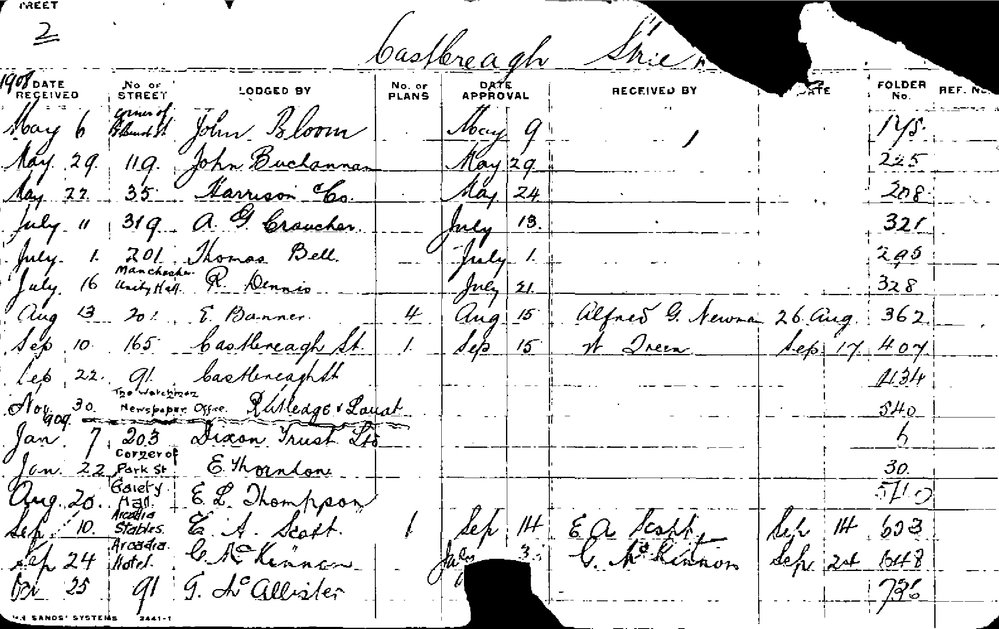 2
Castlereagh
1908 DATE RECEIVED No OR STREET LODGED BY No. OF PLANS DATE APPROVAL RECEIVED BY DATE FOLDER No. REF. No
May 6 corner of John Bloom May 9
May 29 119 John Buchannan May 29 225
May 22 35 Harrison Co. May 24 208
July 11 319 A. G. Croucher July 13 321
July 1 201 Thomas Bell July 1 295
July 16 Manchester Unity Hall R. Dennis July 21 328
Aug 13 201 E. Banner 4 Aug 15 Alfred G. Newman 26 Aug 362
Sep 10 165 Castlereagh St 1 Sep 15 W Treen Sep 17 407
Sep 22 91 Castlereagh St 434
Nov 30 The Watchman Newspaper Office Rutledge & Louat 540
1909
Jan 7 203 Dixon Trust Ltd 6
Jan 22 Corner of Park St E Thornton 30
Aug 20 Gaiety Hall E. L. Thompson
Sep 10 Arcadia Stables E. A. Scott 1 Sep 14 E A Scott Sep 14 623
Sep 24 Arcadia Hotel C McKinnon 3 C. McKinnon Sep 24 648
Oct 25 91 G. McAllister
SANDS' SYSTEMS 2441-1